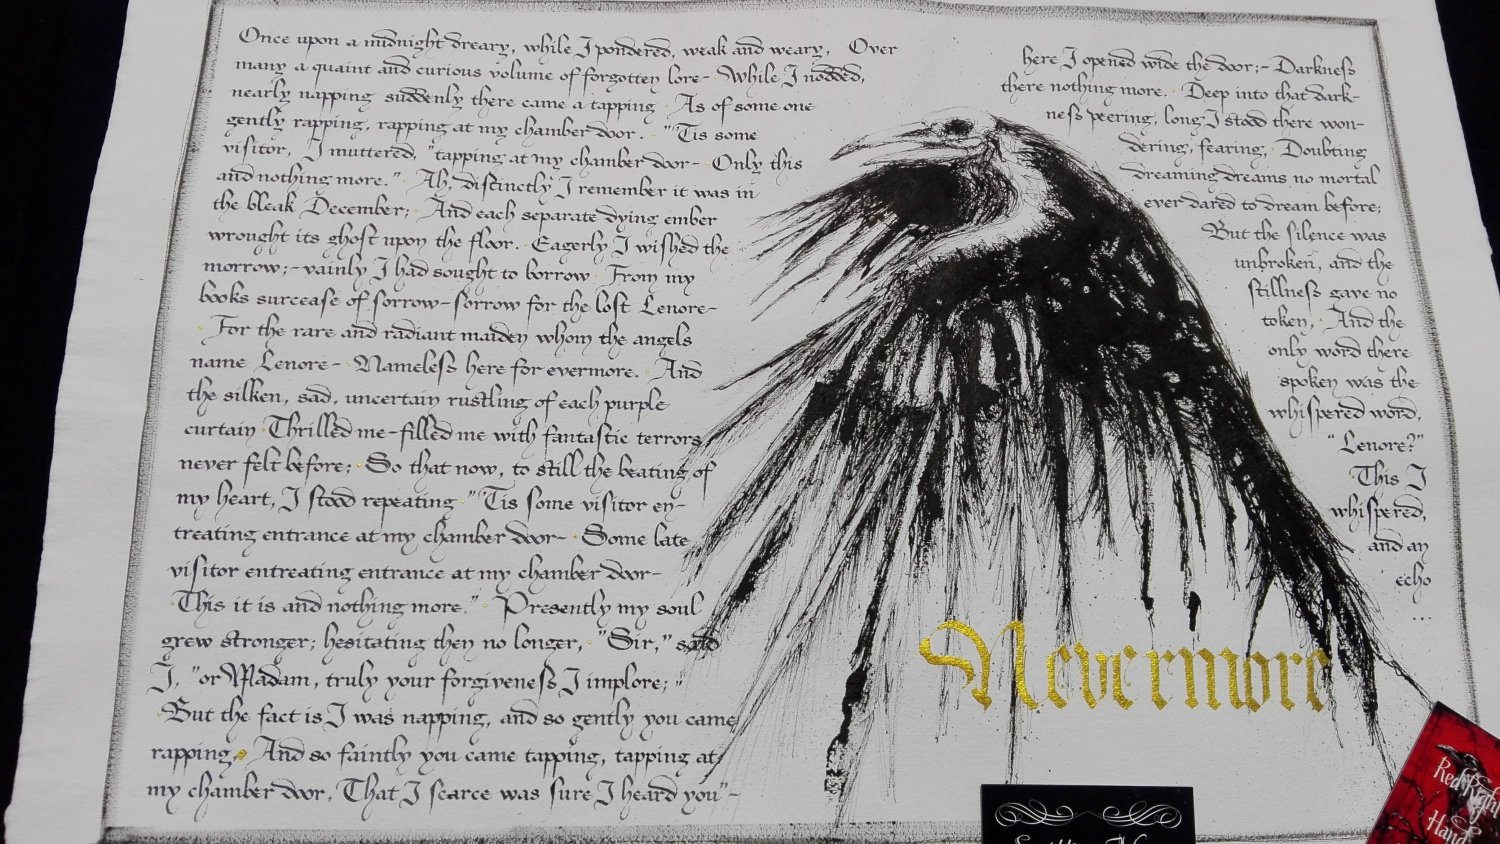 Once upon a midnight dreary, while I pondered, weak and weary, Over
many a quaint and curious volume of forgotten lore- While I nodded,
nearly napping suddenly there came a tapping As of some one
gently rapping, rapping at my chamber door. "'Tis some
visitor, I muttered, "tapping at my chamber door- Only this
and nothing more." Ah, distinctly I remember it was in
the bleak December; And each separate dying ember
wrought its ghost upon the floor. Eagerly I wished the
morrow;- vainly I had sought to borrow From my
books surcease of sorrow- sorrow for the lost Lenore-
For the rare and radiant maiden whom the angels
name Lenore- Nameless here for evermore. And
the silken, sad, uncertain rustling of each purple
curtain Thrilled me- filled me with fantastic terrors
never felt before; So that now, to still the beating of
my heart, I stood repeating "'Tis some visitor en-
treating entrance at my chamber door- Some late
visitor entreating entrance at my chamber door-
This it is and nothing more." Presently my soul
grew stronger; hesitating then no longer, "Sir," said
I, "or Madam, truly your forgiveness I implore; "
But the fact is I was napping, and so gently you came
rapping, And so faintly you came tapping, tapping at
my chamber door, That I scarce was sure I heard you"-
here I opened wide the door;- Darkness
there nothing more. Deep into that dark-
ness peering, long I stood there won-
dering, fearing, Doubting
dreaming dreams no mortal
ever dared to dream before;
But the silence was
unbroken, and the
stillness gave no
token, And the
only word there
spoken was the
whispered word,
"Lenore?"
This I
whispered,
and an
echo
...
Nevermore
Red Right
Hand